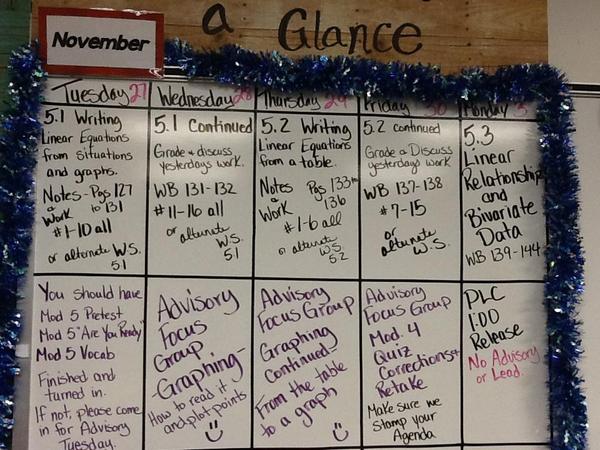 a Glance
November
Tuesday 27
5.1 Writing
Linear Equations
from situations
and graphs.
Notes - Pgs 127
to 131
Work
#1-10 all
or alternate W.S.
5.1
Wednesday 28
5.1 Continued
Grade & discuss
yesterdays work.
WB 131-132
#11-16 all
or alternate
W.S.
5.1
Thursday 29
5.2 Writing
Linear Equations
from a table.
Notes Pgs 133
136
Work
#1-6 all
or alternate
W.S.
5.2
Friday 30
5.2 continued
Grade & Discuss
yesterdays work.
WB 137-138
#7-15
or
alternate
W.S.
Monday 3
5.3
Linear
Relationships
and
Bivariate
Data
WB 139-144
You should have
Mod 5 Pretest
Mod 5 "Are You Ready"
Mod 5 Vocab
Finished and
turned in.
If not, please come
in for Advisory
Tuesday.
Advisory
Focus
Group
-Graphing-
How to read it
and plot points
Advisory
Focus Group
Graphing
Continued-
From the table
to a graph
Advisory
Focus Group
Mod. 4
Quiz
Corrections +
Retake
Make sure we
stamp your
Agenda
PLC
1:00
Release
No Advisory
or Lead.